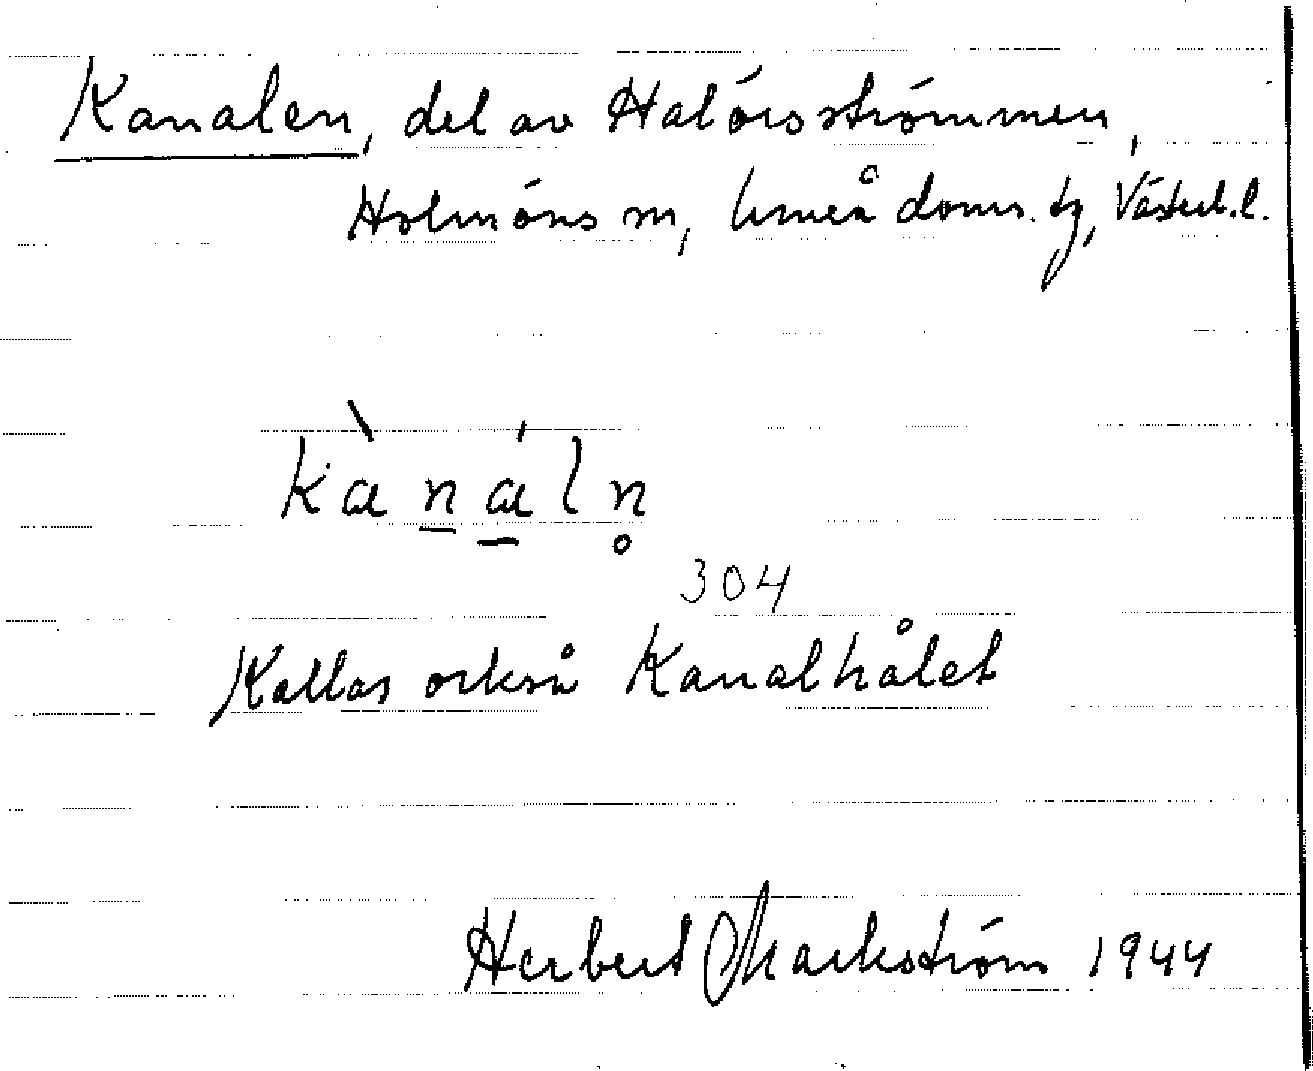 Kanalen, del av Halörsströmmen,
Holmöns sn, Umeå doms. tg, Västerb. l.
kànáln̥
304
Kallas också Kanalhålet
Herbert Markström 1944